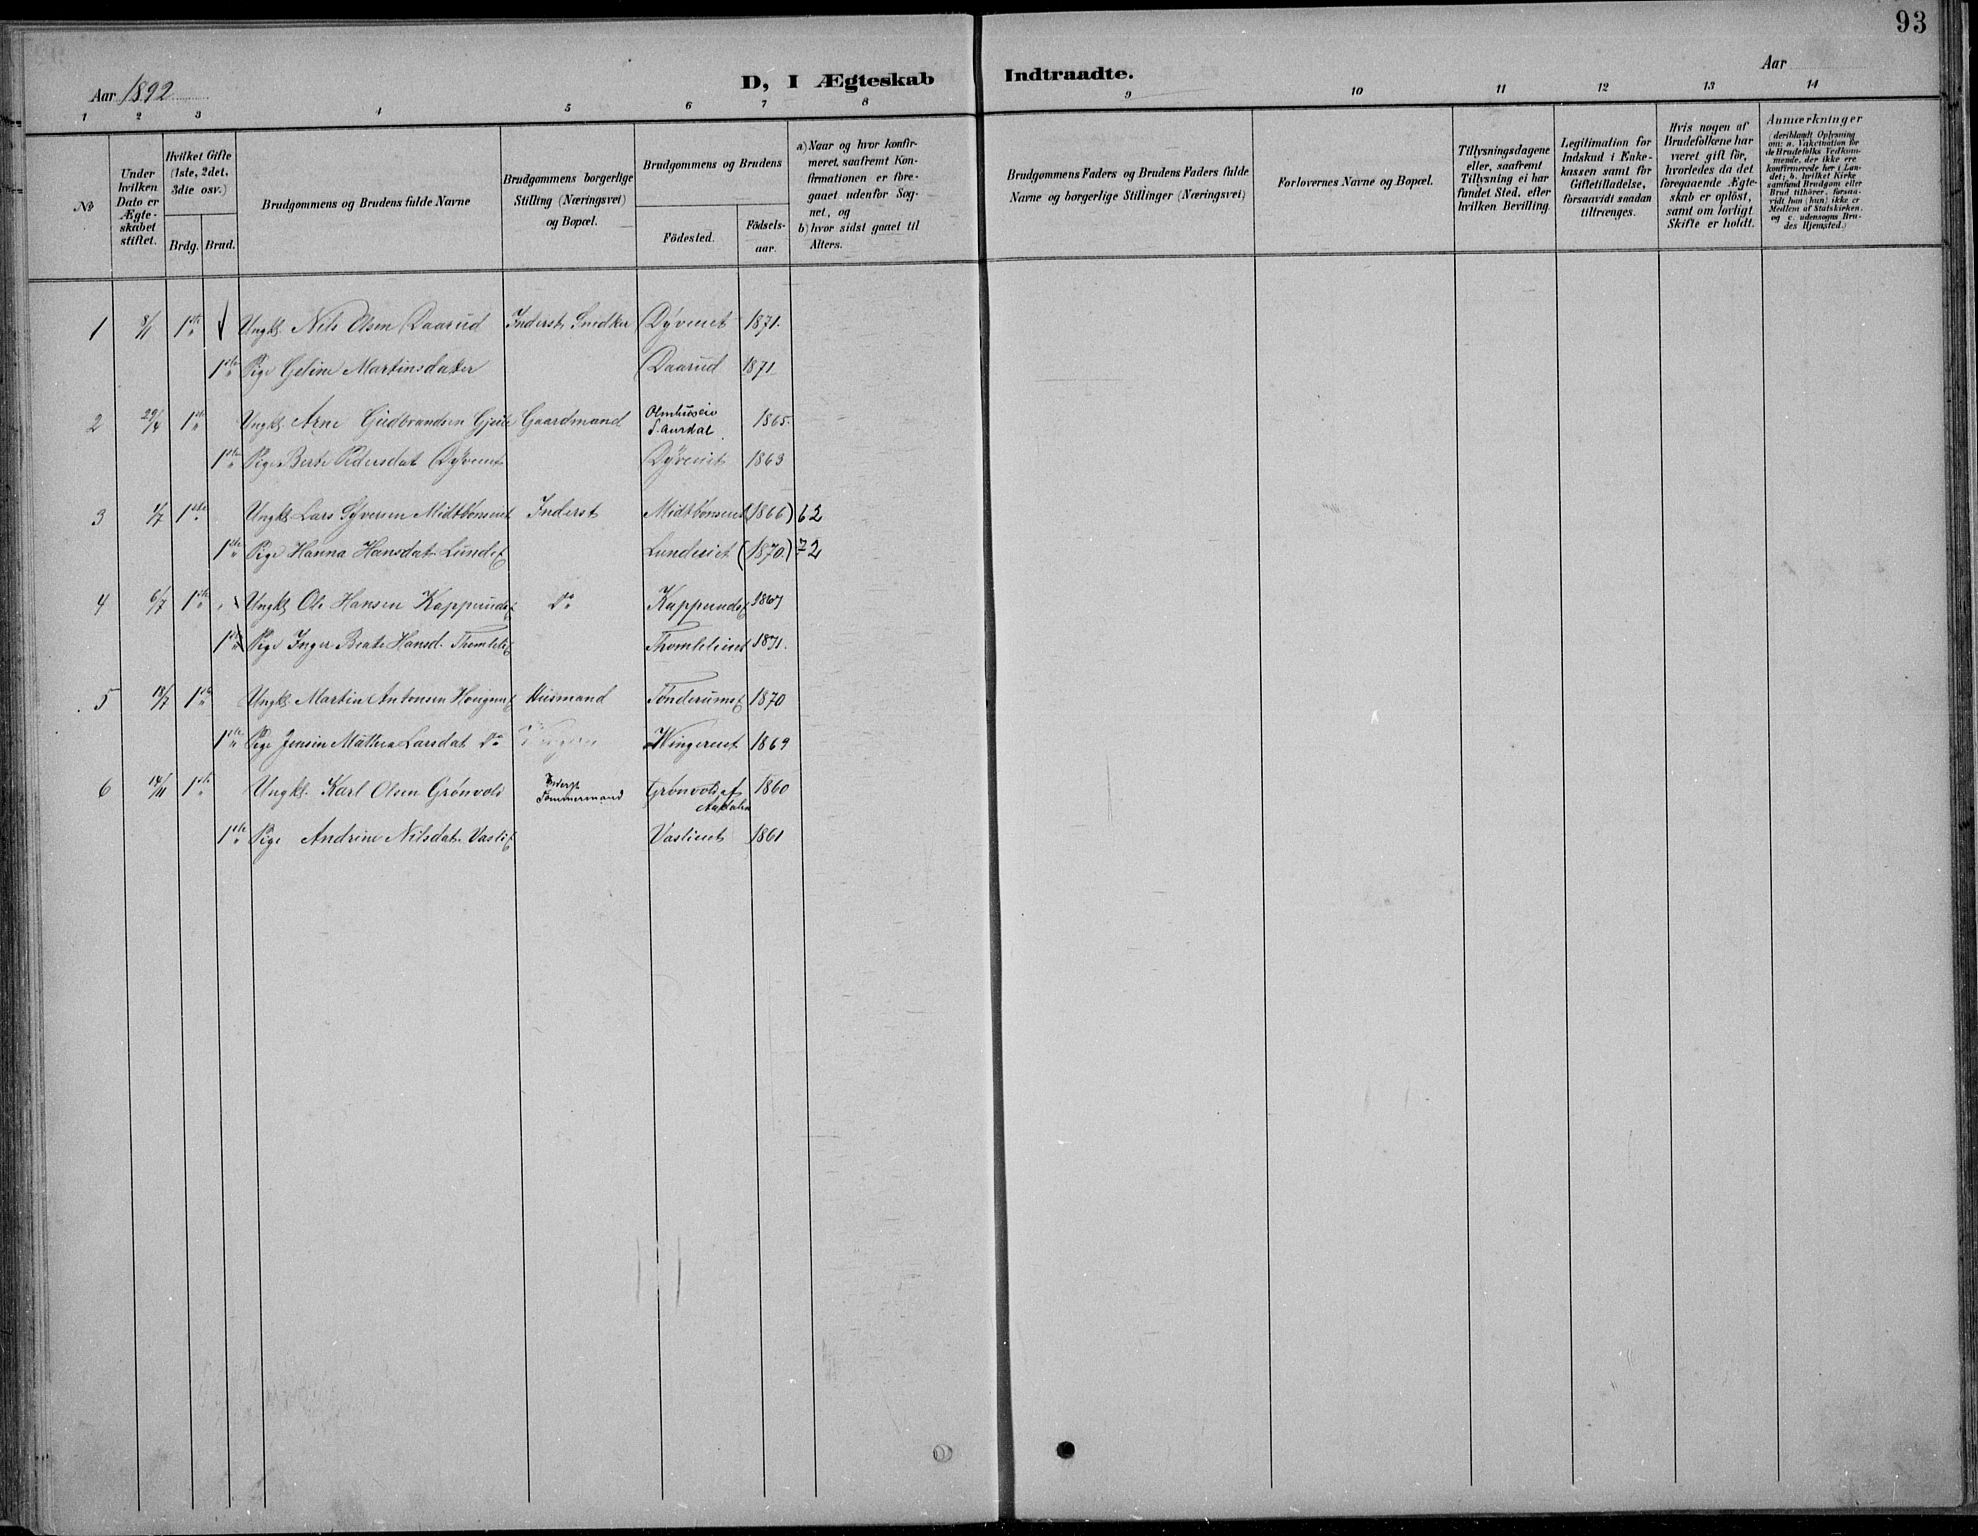 93
Aar 1892
D, I Ægteskab Indtraadte.
Aar
1 2 3 4 5 6 7 8 9 10 11 12 13 14
No
Under hvilken Dato er Ægte-skabet stiftet.
Hvilket Gifte (1ste, 2det, 3die osv.)
Brdg. Brud.
Brudgommens og Brudens fulde Navne
Brudgommens borgerlige Stilling (Næringsvei) og Bopæl.
Brudgommens og Brudens
Födested. Födsels-aar.
a) Naar og hvor konfir-meret, saafremt Kon-firmationen er fore-gaaet udenfor Sog-net, og
b) hvor sidst gaaet til Alters.
Brudgommens Faders og Brudens Faders fulde Navne og borgerlige Stillinger (Næringsvei)
Forlovernes Navne og Bopæl.
Tillysningsdagene eller, saafremt Tillysning ei har fundet Sted, efter hvilken Bevilling.
Legitimation for Indskud i Enke-kassen samt for Giftetilladelse, forsaavidt saadan tiltrænges.
Hvis nogen af Brudefolkene har været gift för, hvorledes da det foregaaende Ægte-skab er oplöst, samt om lovligt Skifte er holdt.
Anmærkninger
(deriblandt Oplysning om: a. Vakcination for de Brudefolks Vedkom-mende, der ikke ere konfirmerede her i Lan-det; b. hvilket Kirke samfund Brudgom eller Brud tilhörer, forsaa-vidt han (hun) ikke er Medlem af Statskirken, og c. udensogns Bru-des Hjemsted.)
1 8/1 1ste Ungkl. Nils Olsen Daarud Inderst, Snedker Dyveiet 1871.
1ste Pige Geline Martinsdatter Daarud 1871
2 29/4 1ste Ungkl. Arne Gudbrandsen Gjeile Gaardmand Olmhuseie S. Aurdal 1865.
1ste Pige Berte Pedersdat Dyveiet Dyveiet 1863
3 1/7 1ste Ungkl. Lars Syversen Midtbönseiet Inderst Midtbönseiet (1866) 62
1ste Pige Hanna Hansdat Lunde Lundeiet (1870.) 72
4 6/7 1ste Ungkl. Ole Hansen Kapperuds Do Kapperuds 1867
1ste Pige Inger Beate Hansd. Thomlei Thomleieiet 1871.
5 18/7 1ste Ungkl. Martin Antonsen Haugner Husmand Tönderums 1870
1ste Pige Jensin Mathea Larsdat Do Wingereiet 1869
6 14/11 1ste Ungkl. Karl Olsen Grönvold Inderst Tömmermand Grönvold af Aadalen 1860
1ste Pige Andrine Nilsdat. Vasli Vaslieiet 1861